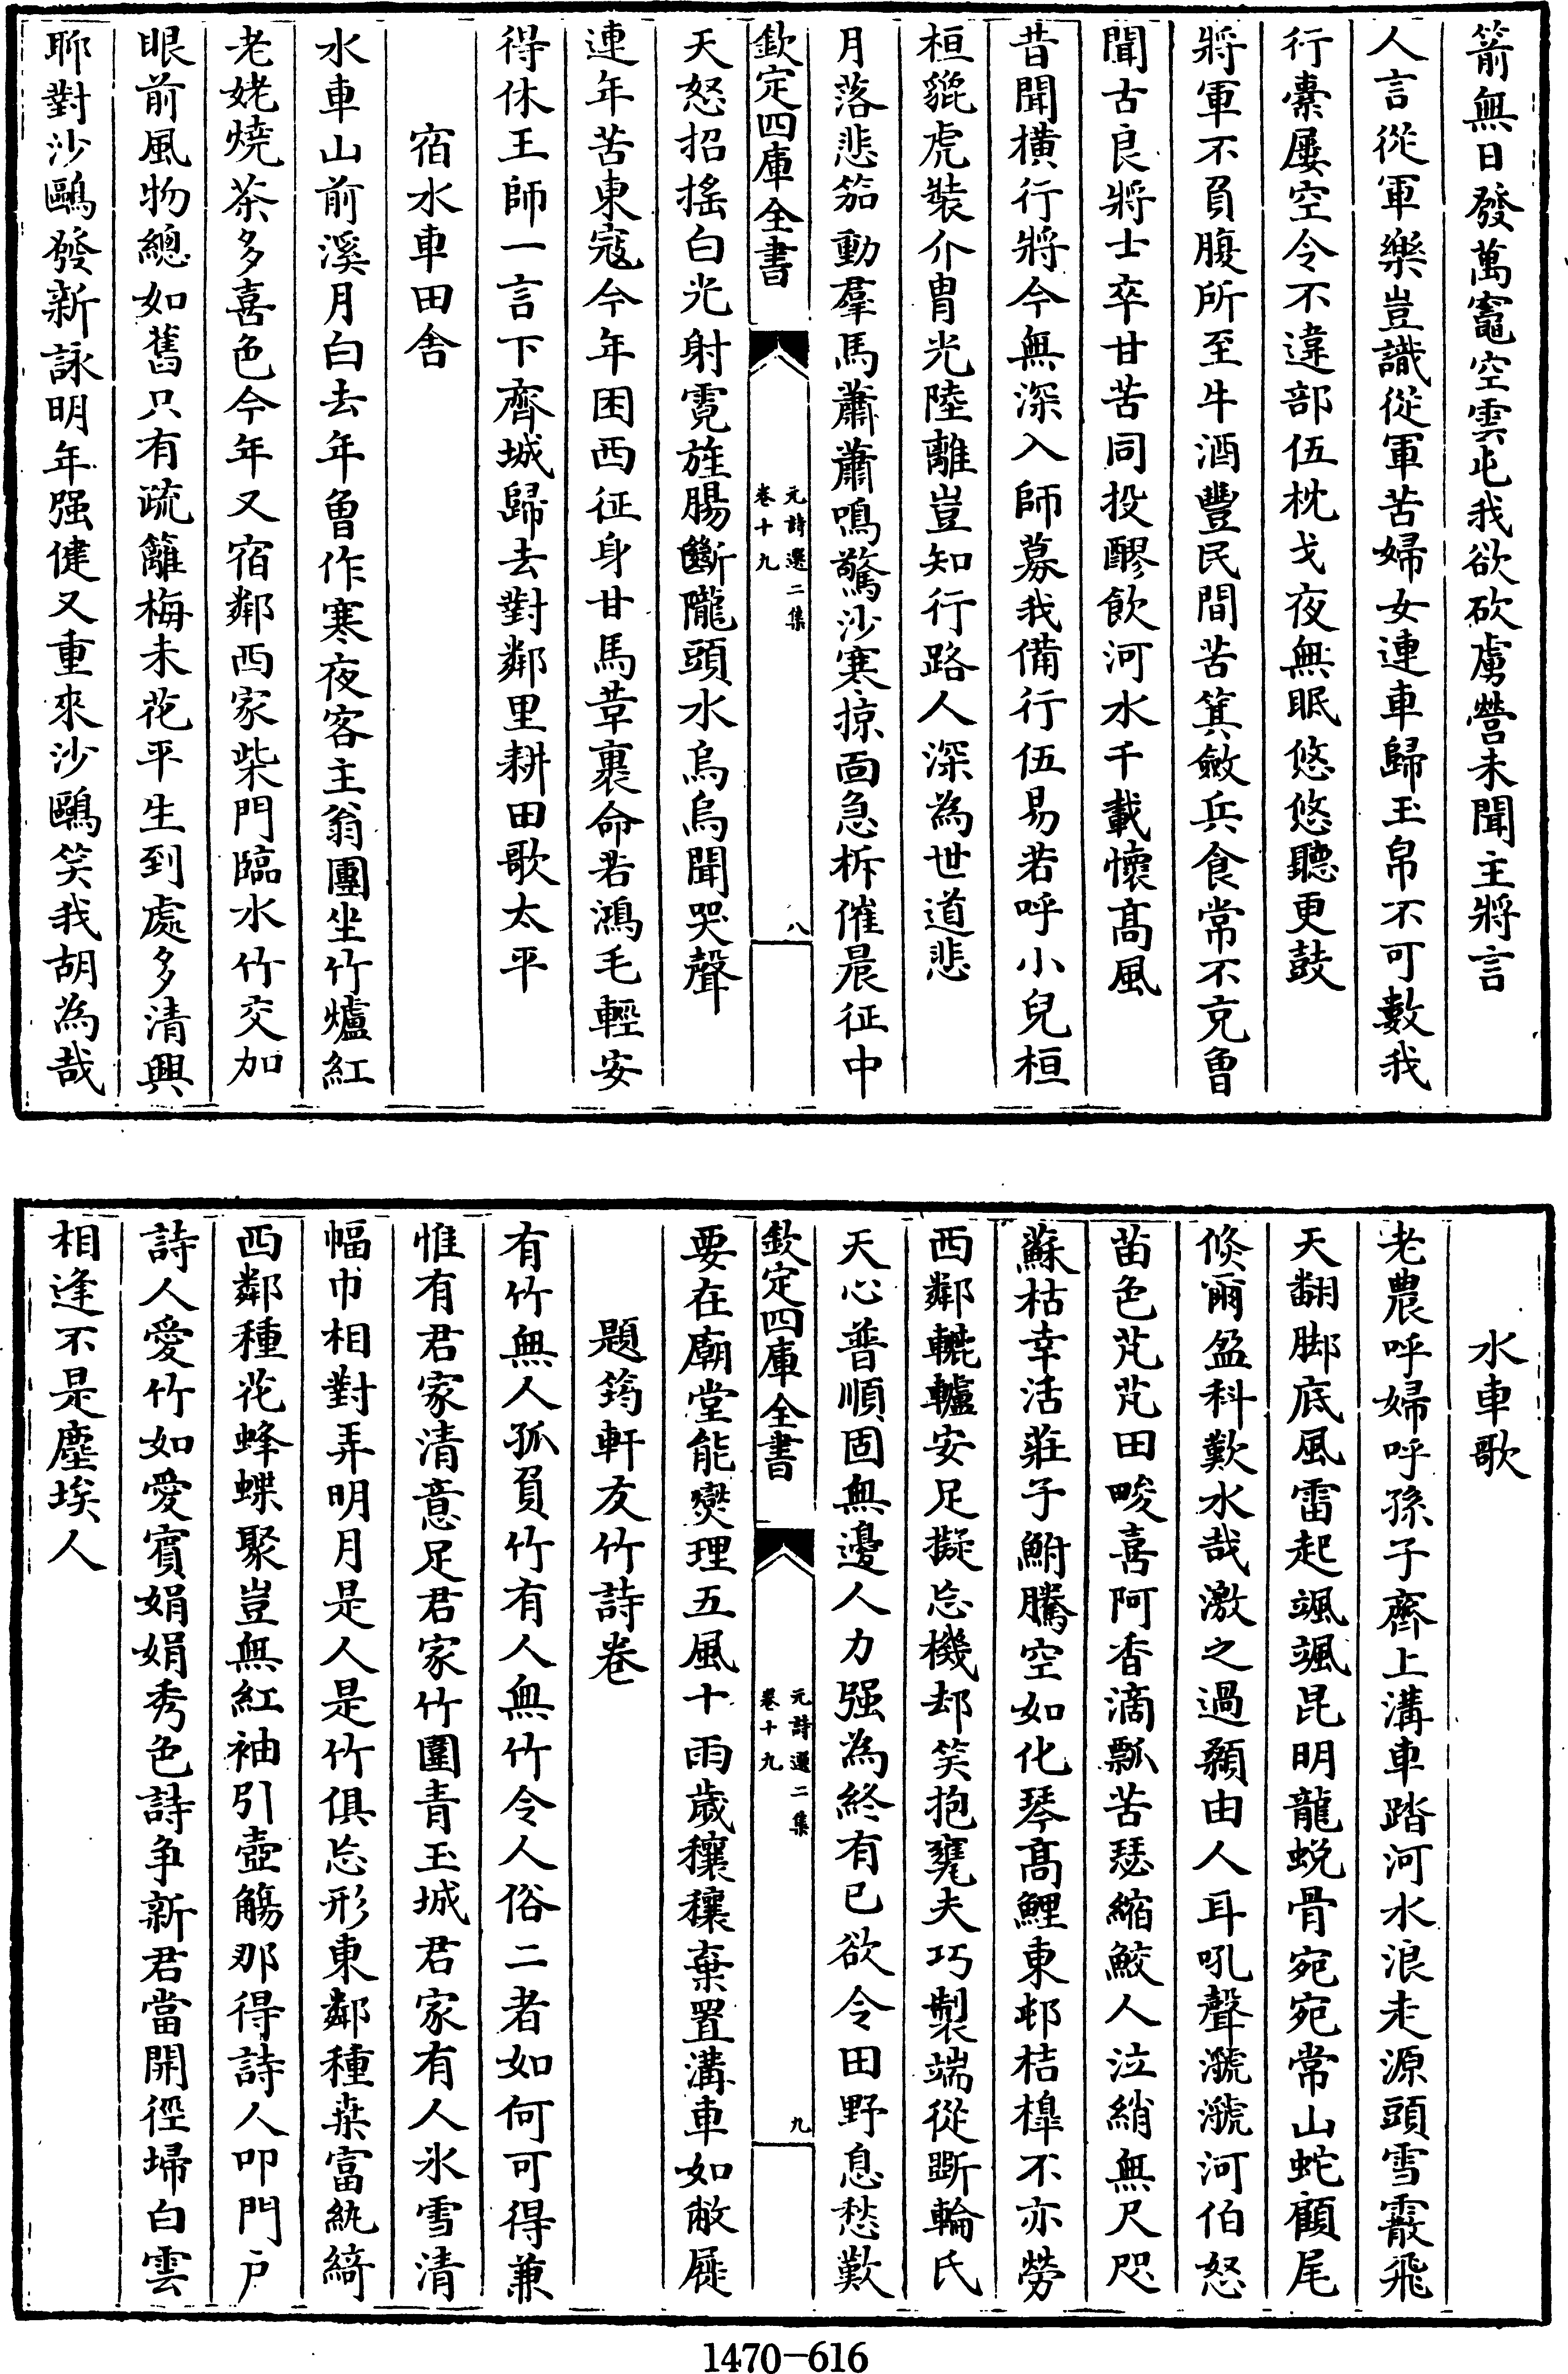 箭無日發萬竈空雲屯我欲砍虜營未聞主將言
人言從軍樂豈識從軍苦婦女連車歸玉帛不可數我
行橐屢空令不違部伍枕戈夜無眠悠悠聽更鼓
將軍不負腹所至牛酒豐民間苦箕斂兵食常不克曾
聞古良將士卒甘苦同投醪飲河水千載懷髙風
昔聞橫行將今無深入師募我備行伍易若呼小兒桓
桓貔虎裝介胄光陸離豈知行路人深為世道悲
月落悲笳動羣馬蕭蕭鳴驚沙寒掠面急柝催晨征中
欽定四庫全書
元詩選二集
卷十九
八
天怒招搖白光射霓旌腸斷隴頭水烏烏聞哭聲
連年苦東寇今年困西征身甘馬革裹命若鴻毛輕安
得休王師一言下齊城歸去對鄰里耕田歌太平
宿水車田舎
水車山前溪月白去年曾作寒夜客主翁團坐竹爐紅
老姥燒茶多喜色今年又宿鄰西家柴門臨水竹交加
眼前風物總如舊只有疏籬梅未花平生到處多清興
聊對沙鷗發新詠明年强健又重來沙鷗笑我胡為哉
水車歌
老農呼婦呼孫子齊上溝車踏河水浪走源頭雪霰飛
天翻脚底風雷起颯颯昆明龍蛻骨宛宛常山蛇顧尾
倐爾盈科歎水哉激之過顙由人耳吼聲㶁㶁河伯怒
苗色芃芃田畯喜阿香滴瓢苦瑟縮鮫人泣綃無尺咫
蘇枯幸活莊子鮒騰空如化琴髙鯉東邨桔橰不亦勞
西鄰轆轤安足擬忘機却笑抱甕夫巧製端從斵輪氏
天心普順固無邊人力强為終有已欲令田野息愁歎
欽定四庫全書
元詩選二集
卷十九
九
要在廟堂能爕理五風十雨歲穰穰棄置溝車如敝屣
題筠軒友竹詩卷
有竹無人孤負竹有人無竹令人俗二者如何可得兼
惟有君家清意足君家竹圍青玉城君家有人氷雪清
幅巾相對弄明月是人是竹俱忘形東鄰種桒富紈綺
西鄰種花蜂蝶聚豈無紅袖引壺觴那得詩人叩門户
詩人愛竹如愛賓娟娟秀色詩争新君當開徑埽白雲
相逢不是塵埃人
1470-616